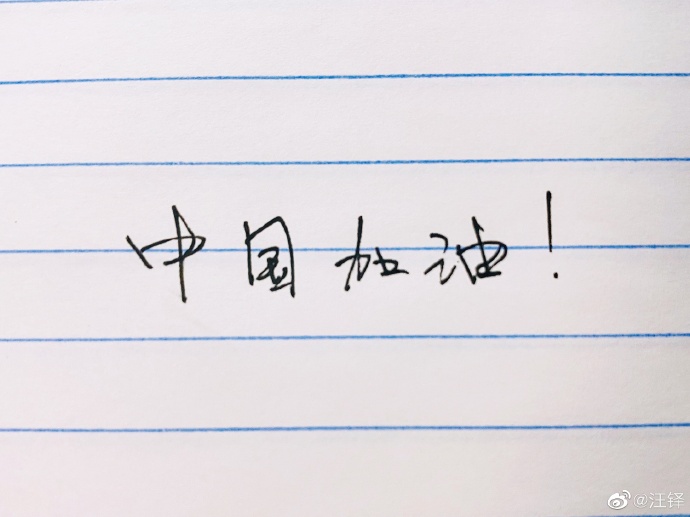 中国加油！
@汪铎